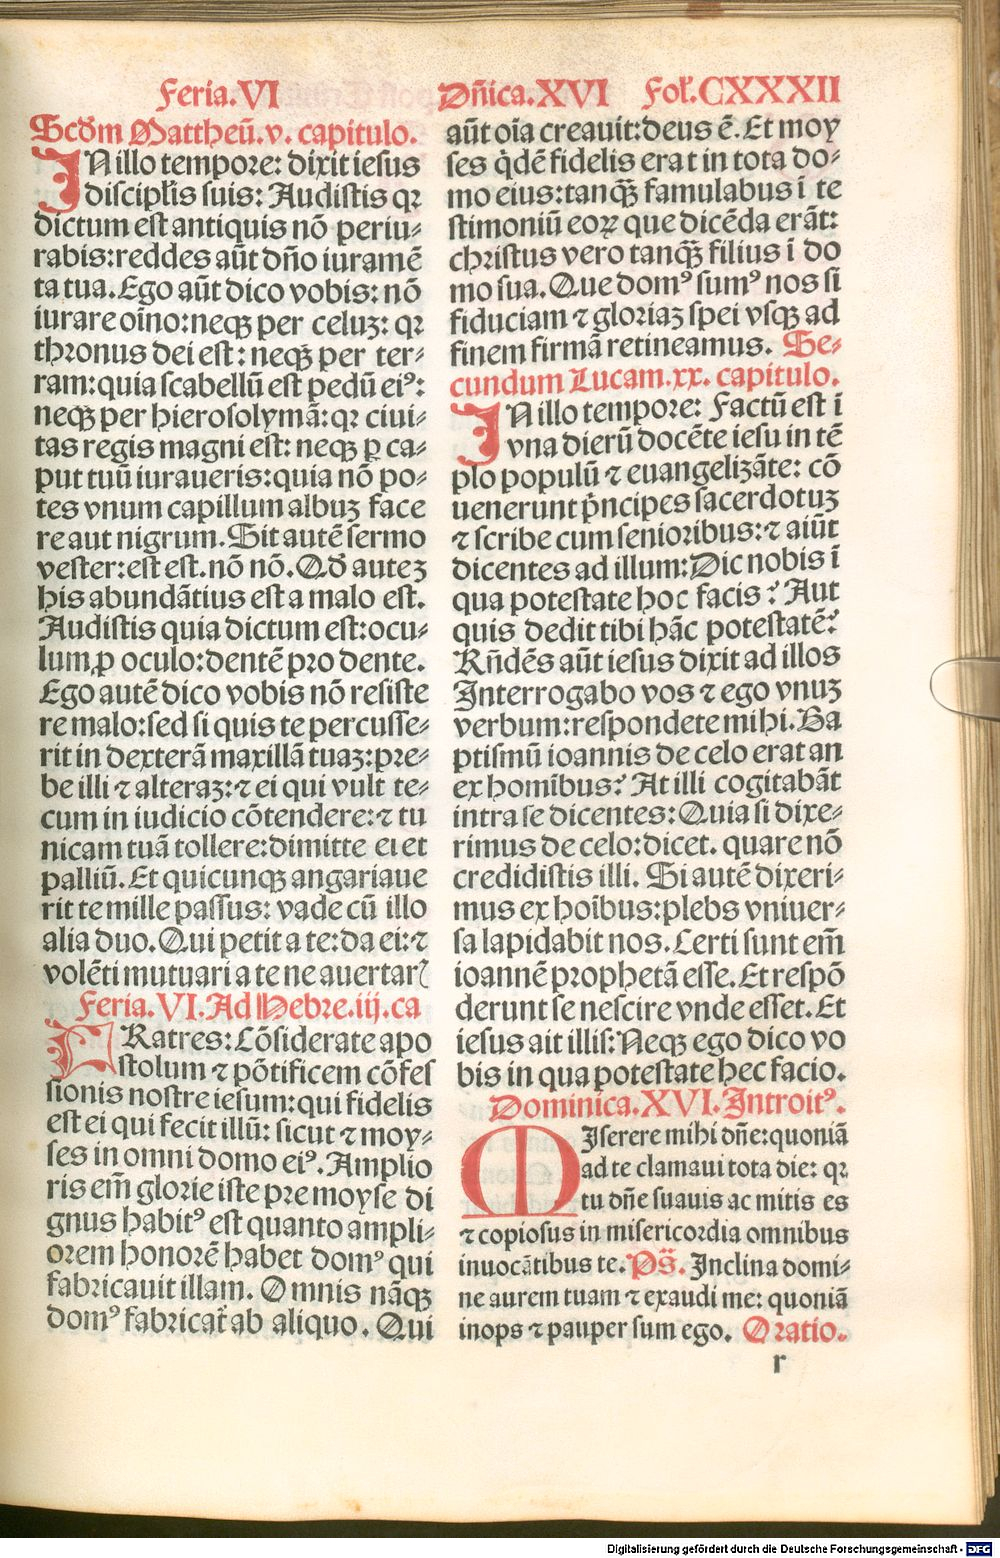 Feria.VI
Dñica.XVI Fol̃.CXXXII
Scd̃m Mattheũ.v. capitulo.
IN illo tempore: dixit iesus
discipl̃is suis: Audistis qꝛ
dictum est antiquis nõ periu⸗
rabis:reddes aũt dño iuramẽ
ta tua.Ego aũt dico vobis: nõ
iurare oĩno:neqꝫ per celuꝫ: qꝛ
thronus dei est: neqꝫ per ter⸗
ram:quia scabellũ est pedũ eiꝰ:
neqꝫ per hierosolymã: qꝛ ciui⸗
tas regis magni est: neqꝫ ꝑ ca⸗
put tuũ iuraueris:quia nõ po⸗
tes vnum capillum albuꝫ face
re aut nigrum.Sit autẽ sermo
vester:est est.nõ nõ.Qd̃ auteꝫ
his abundãtius est a malo est.
Audistis quia dictum est:ocu⸗
lum ꝓ oculo:dentẽ pro dente.
Ego autẽ dico vobis nõ resiste
re malo:sed si quis te percusse⸗
rit in dexterã maxillã tuaꝫ:pre⸗
be illi ⁊ alteraꝫ:⁊ ei qui vult te⸗
cum in iudicio cõtendere:⁊ tu
nicam tuã tollere:dimitte ei et
palliũ.Et quicunqꝫ angariaue
rit te mille passus: vade cũ illo
alia duo.Qui petit a te:da ei:⁊
volẽti mutuari a te ne auertarꝭ
Feria.VI.Ad Hebre.iij.ca
FRatres: Cõsiderate apo
stolum ⁊ põtificem cõfes
sionis nostre iesum:qui fidelis
est ei qui fecit illũ: sicut ⁊ moy⸗
ses in omni domo eiꝰ.Amplio
ris em̃ glorie iste pre moyse di
gnus habitꝰ est quanto ampli⸗
orem honorẽ habet domꝰ qui
fabricauit illam. Omnis nãqꝫ
domꝰ fabricat̃ ab aliquo. Qui
aũt oĩa creauit:deus ẽ.Et moy
ses q̇dẽ fidelis erat in tota do⸗
mo eius:tanqꝫ̃ famulabus ĩ te
stimoniũ eoꝝ que dicẽda erãt:
christus vero tanqꝫ̃ filius ĩ do
mo sua.Que domꝰ sumꝰ nos si
fiduciam ⁊ gloriaꝫ spei vsqꝫ ad
finem firmã retineamus. Se⸗
cundum Lucam.xx. capitulo.
IN illo tempore: Factũ est ĩ
vna dierũ docẽte iesu in tẽ
plo populũ ⁊ euangelizãte: cõ
uenerunt pṙncipes sacerdotuꝫ
⁊ scribe cum senioribus:⁊ aiũt
dicentes ad illum:Dic nobis ĩ
qua potestate hoc facis? Aut
quis dedit tibi hãc potestatẽ?
Rñdẽs aũt iesus dixit ad illos
Interrogabo vos ⁊ ego vnuꝫ
verbum:respondete mihi.Ba
ptismũ ioannis de celo erat an
ex hominĩbus? At illi cogitabãt
intra se dicentes:Quia si dixe⸗
rimus de celo:dicet. quare nõ
credidistis illi. Si autẽ dixeri⸗
mus ex hoĩbus:plebs vniuer⸗
sa lapidabit nos.Certi sunt em̃
ioannẽ prophetã esse.Et respõ
derunt se nescire vnde esset.Et
iesus ait illis:Neqꝫ ego dico vo
bis in qua potestate hec facio.
Dominica.XVI.Introitꝰ.
MIserere mihi dñe:quoniã
ad te clamaui tota die: qꝛ
tu dñe suauis ac mitis es
⁊ copiosus in misericordia omnibus
inuocãtibus te.Ps̃.Inclina domi⸗
ne aurem tuam ⁊ exaudi me: quoniã
inops ⁊ pauper sum ego. Oratio.
r
Digitalisierung gefördert durch die Deutsche Forschungsgemeinschaft - DFG